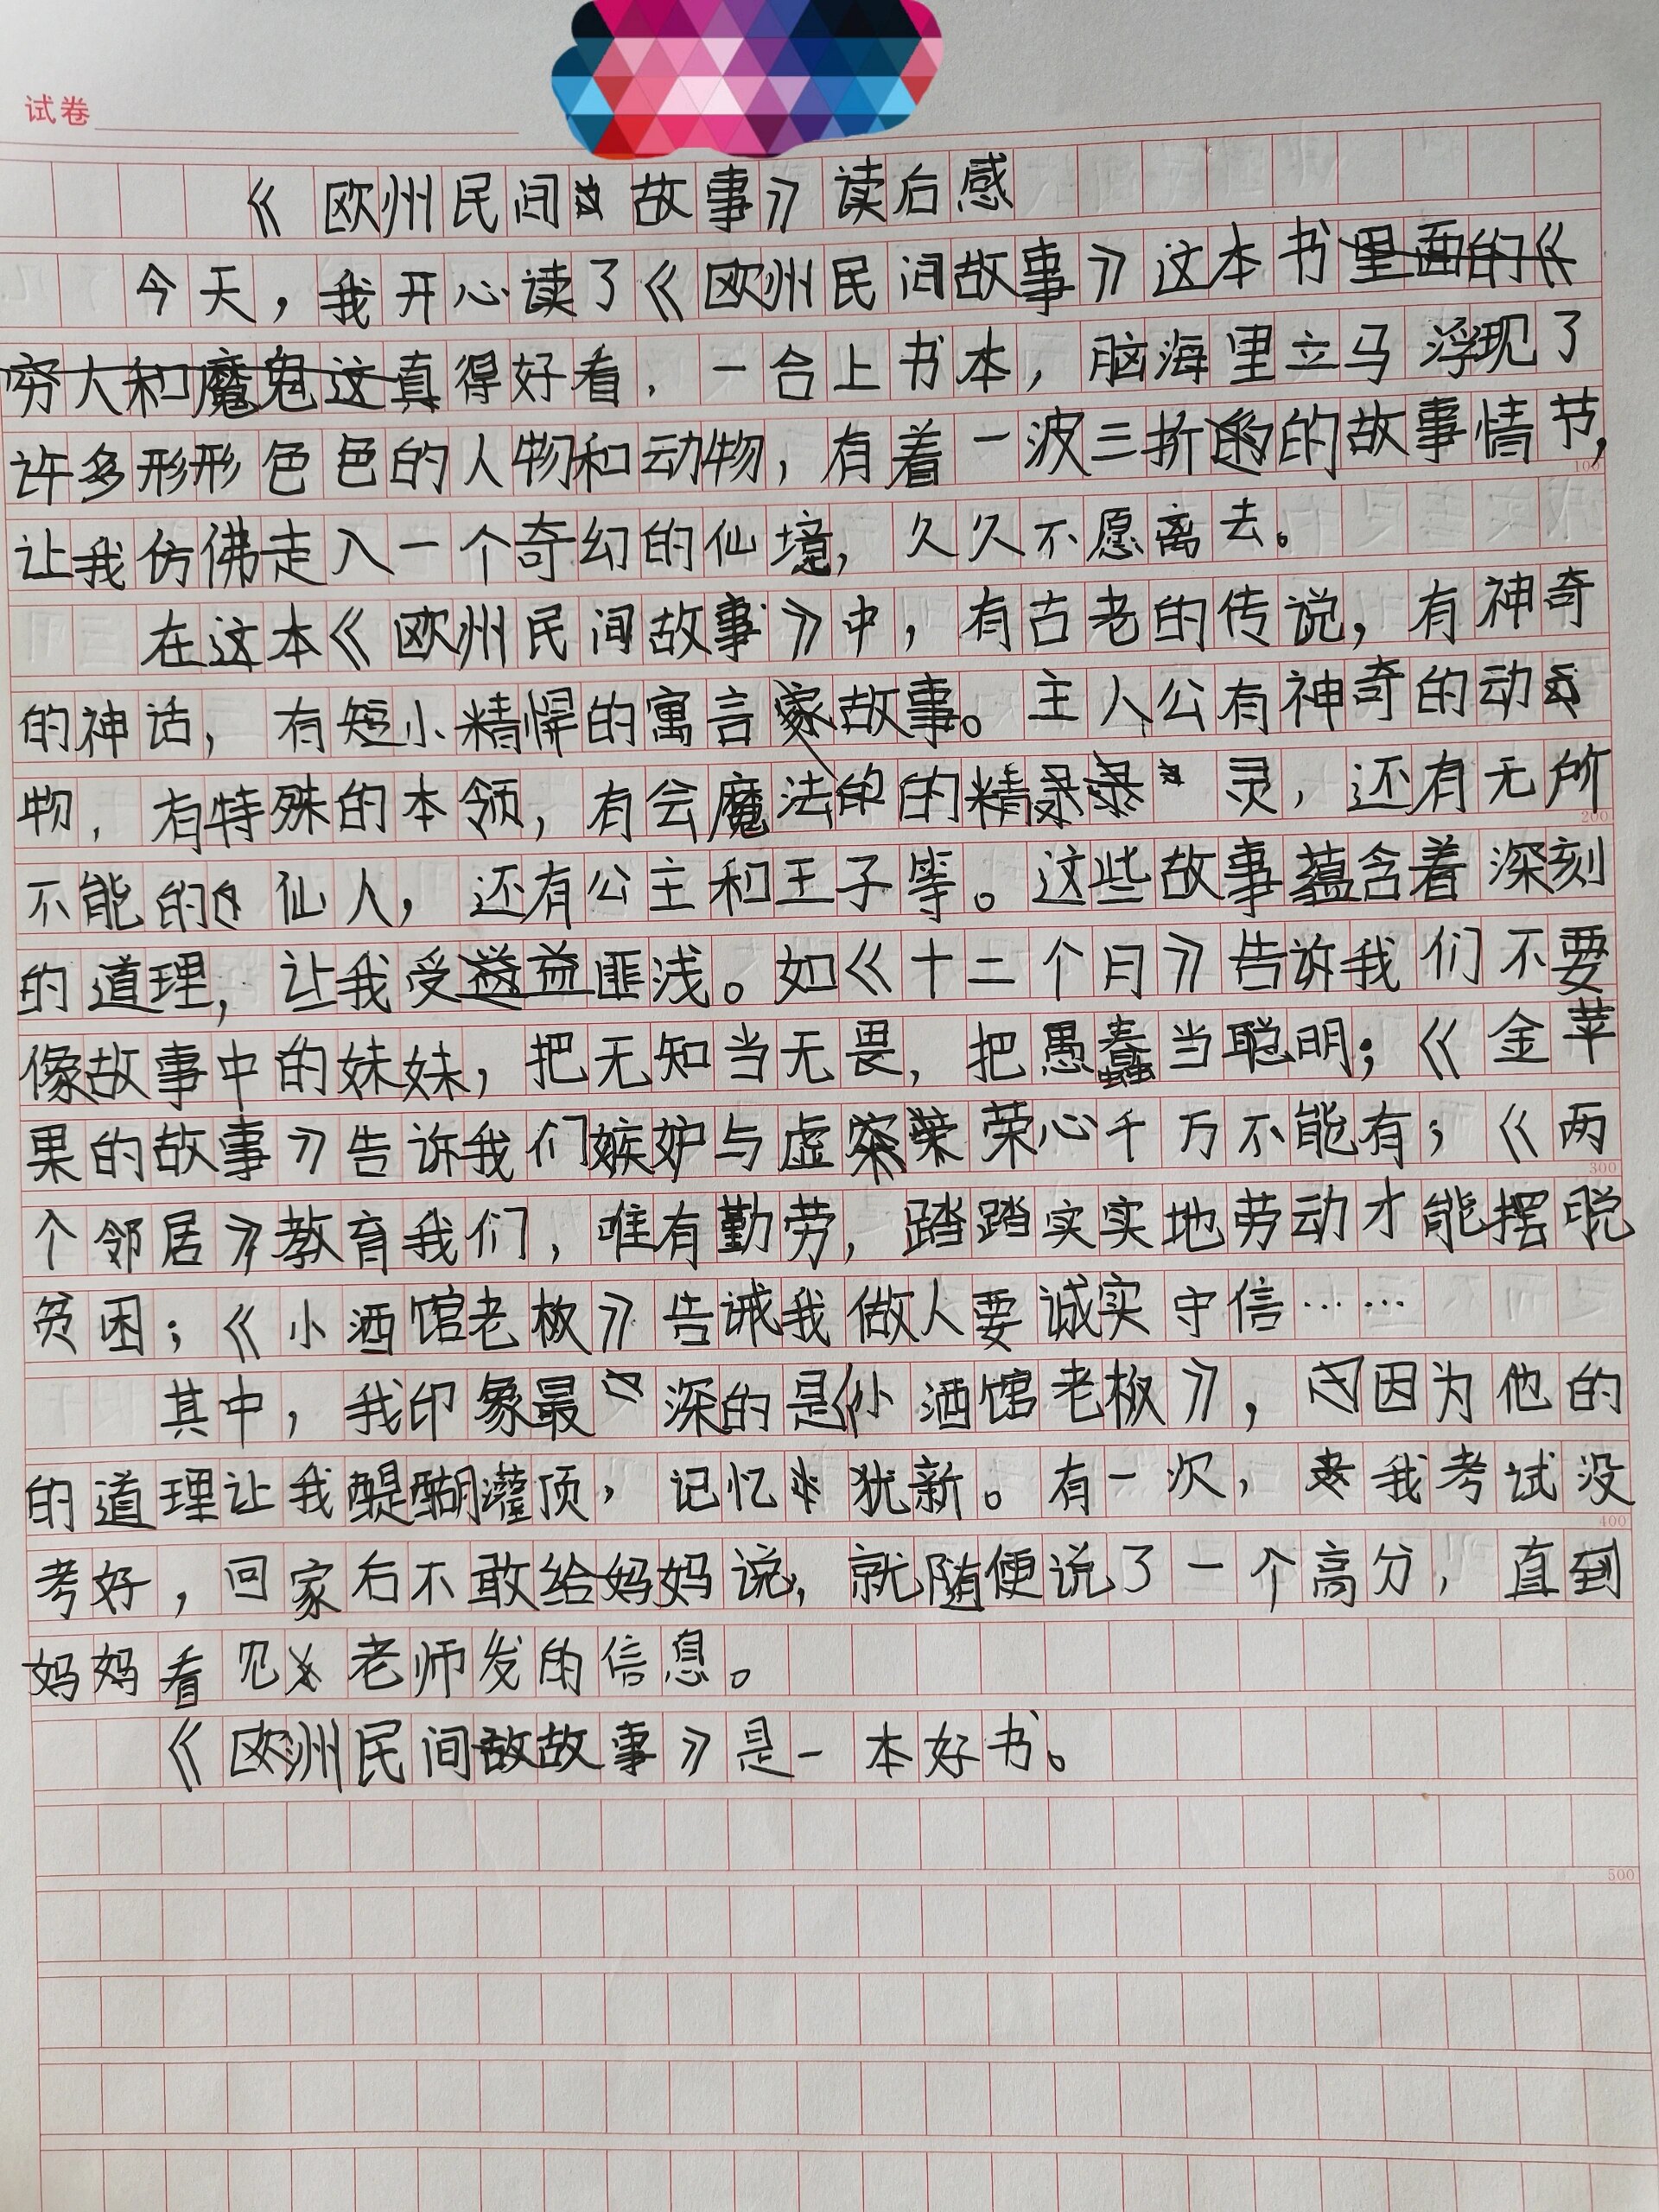 试卷
《欧州民间故事》读后感
今天，我开心读了《欧州民间故事》这本书里面的《
穷人和魔鬼这真得好看，一合上书本，脑海里立马浮现了
许多形形色色的人物和动物，有着一波三折的故事情节，
100
让我仿佛走入一个奇幻的仙境，久久不愿离去。
在这本《欧州民间故事》中，有古老的传说，有神奇
的神话，有短小精悍的寓言故事。主人公有神奇的动
物，有特殊的本领，有会魔法的精灵，还有无所
200
不能的仙人，还有公主和王子等。这些故事蕴含着深刻
的道理，让我受益匪浅。如《十二个月》告诉我们不要
像故事中的妹妹，把无知当无畏，把愚蠢当聪明；《金苹
果的故事》告诉我们嫉妒与虚荣心千万不能有；《两
300
个邻居》教育我们，唯有勤劳，踏踏实实地劳动才能摆脱
贫困；《小酒馆老板》告诫我做人要诚实守信……
其中，我印象最深的是《小酒馆老板》，因为他的
的道理让我醍醐灌顶，记忆犹新。有一次，我考试没
400
考好，回家后不敢给妈妈说，就随便说了一个高分，直到
妈妈看见老师发的信息。
《欧洲民间故事》是一本好书。
500